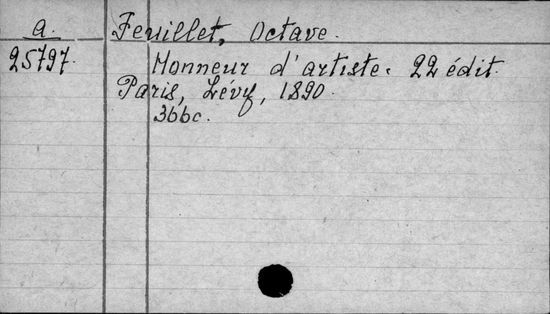 a.
25797.
Feuillet, Octave.
Honneur d'artiste. 22 édit.
Paris, Lévy, 1890.
366c.